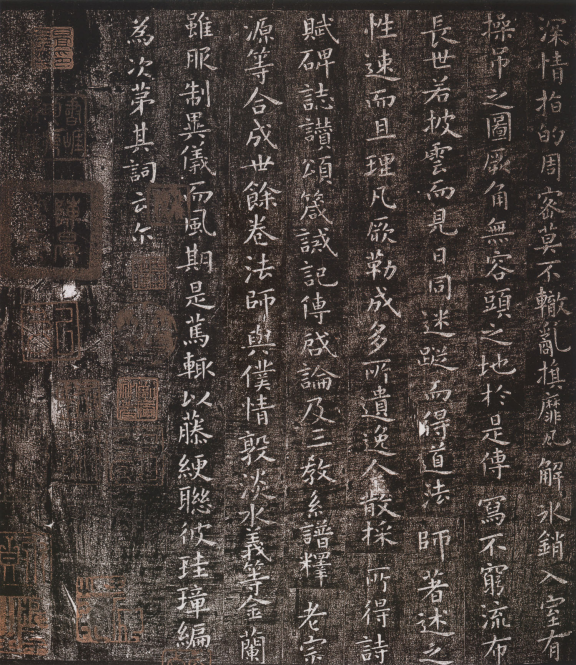 深情指的周密莫不轍亂旗靡瓦解氷銷入室有
操弟之圖厥角無容頭之地於是傳寫不窮流布
長世若披雲而見日同迷蹤而得道法師著述之
性速而且理凡厥勒成多所遺逸今散採所得詩
賦碑誌讃頌箴誡記傳啟論及三教系譜釋老宗
源等合成卅餘卷法師與僕情敦淡水義等金蘭
雖服制異儀而風期是篤輒以藤綆聯彼珪璋編
為次第其詞云尒